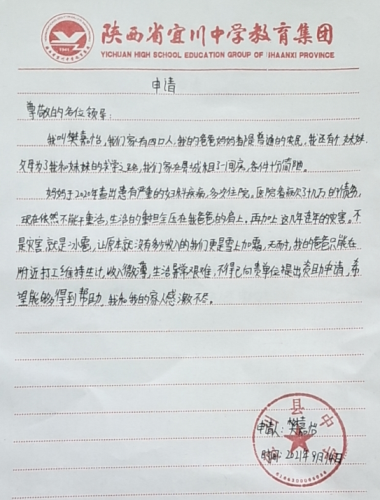 陕西省宜川中学教育集团
YICHUAN HIGH SCHOOL EDUCATION GROUP OF SHAANXI PROVINCE
申请
尊敬的各位领导:
我叫樊嘉怡,我们家有四口人,我的爸爸妈妈都是普通的农民,我还有个妹妹
父母为了我和妹妹的求学之路,我们家在县城租了一间房,条件十分简陋。
妈妈于2020年查出患有严重的妇科疾病,多次住院,医院看病欠了十几万的债务,
现在依然不能干重活,生活的重担全压在我爸爸的肩上。再加上这几年连年的灾害。不
是灾害就是冰雹,让原本就没有多少收入的我们更是雪上加霜,无奈中,我的爸爸只能在
附近打工维持生计,收入微薄,生活异常艰难,不得已向贵单位提出资助申请,希
望能够得到帮助,我和我的家人感激不尽。
申请人:樊嘉怡
时间:2021年9月14日